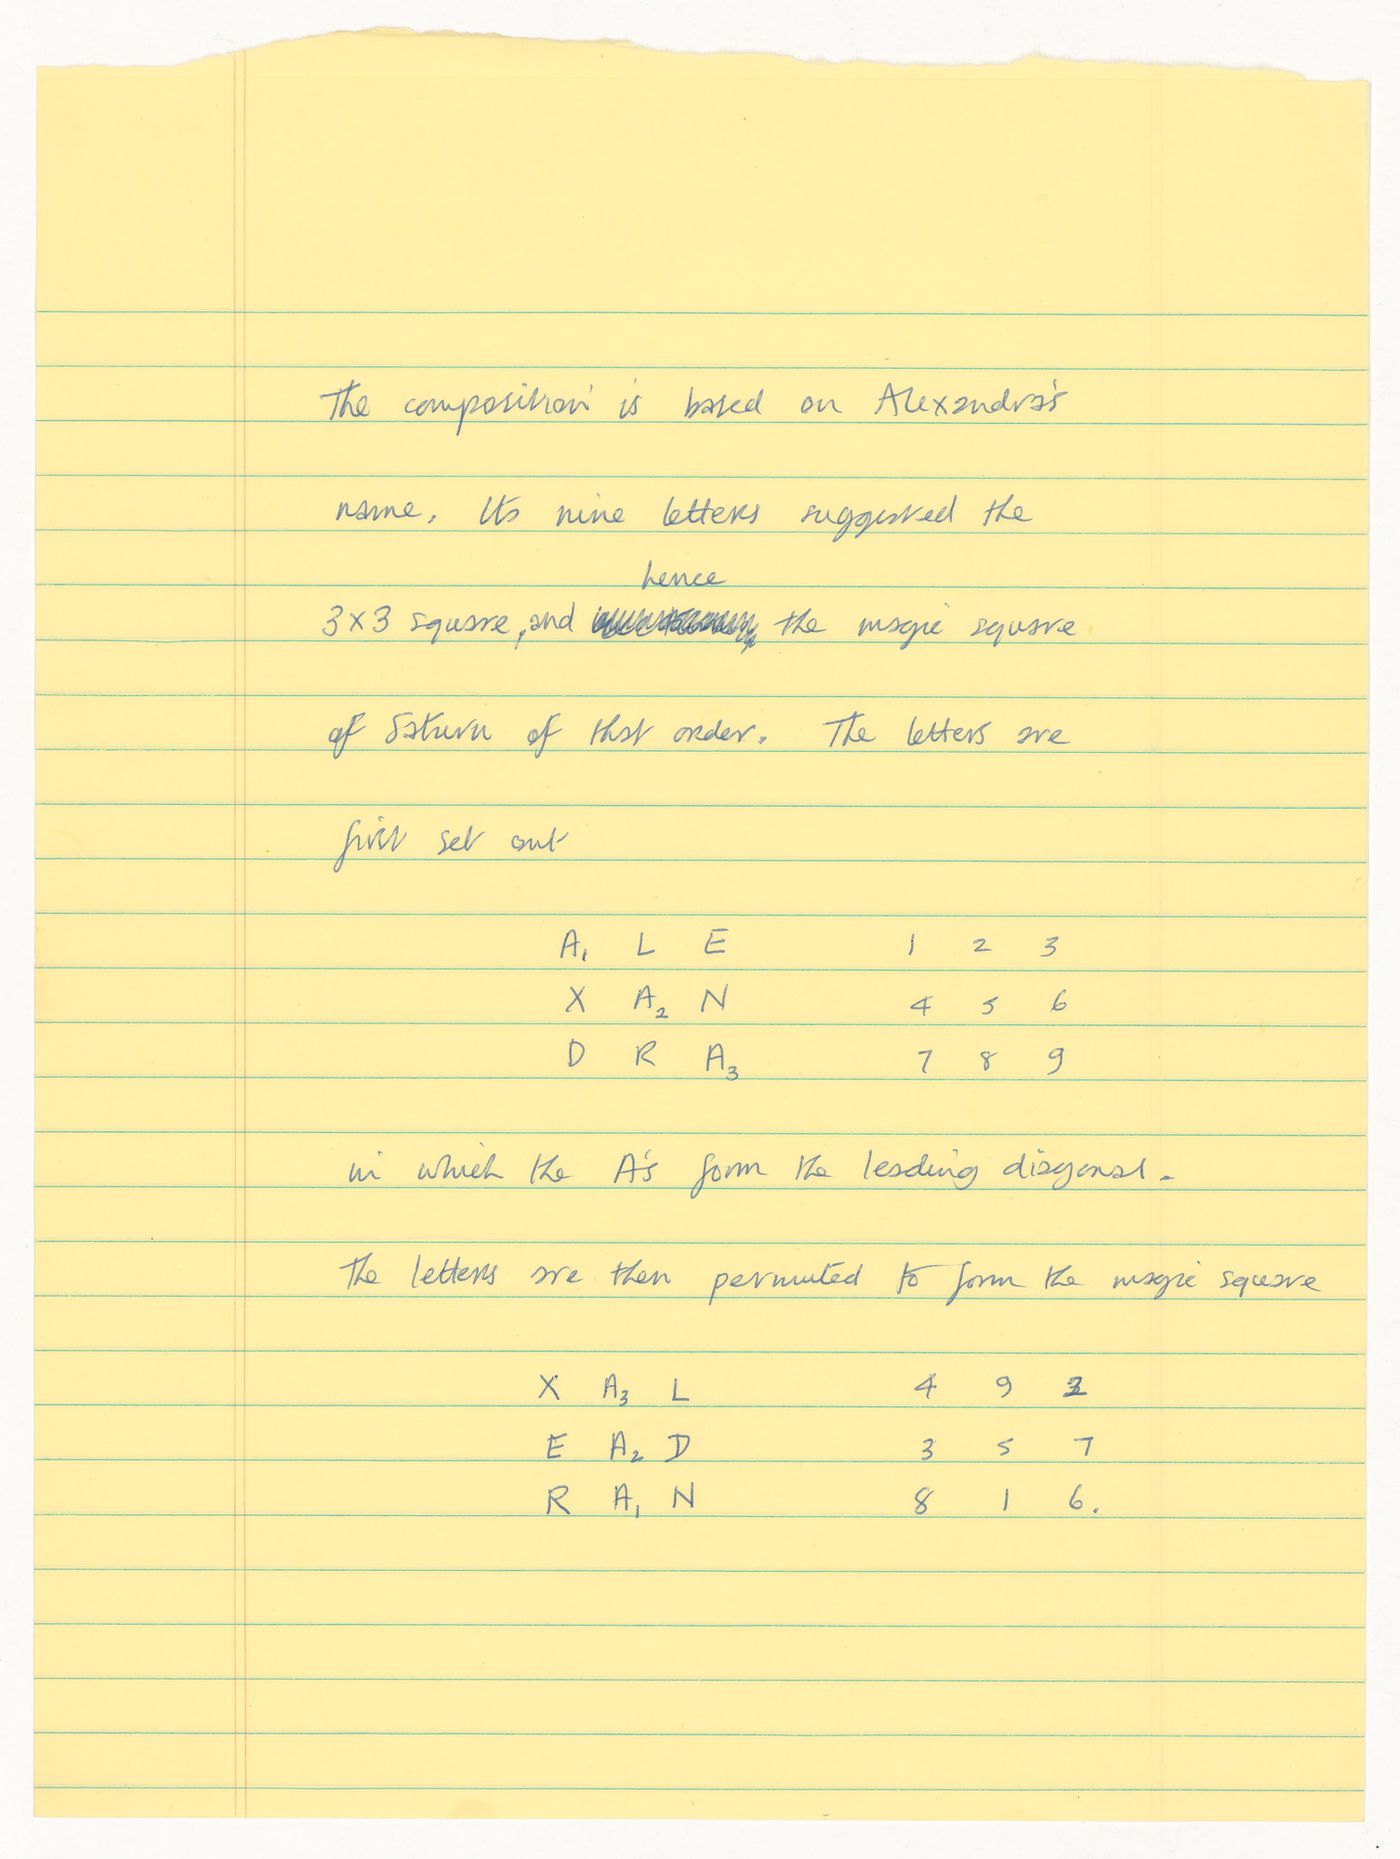 The composition is based on Alexandra's
name. Its nine letters suggested the
hence
3×3 square, and the magic square
of Saturn of that order. The letters are
first set out
A₁ L E 1 2 3
X A₂ N 4 5 6
D R A₃ 7 8 9
in which the A's form the leading diagonal.
The letters are then permuted to form the magic square
X A₃ L 4 9 2
E A₂ D 3 5 7
R A₁ N 8 1 6.